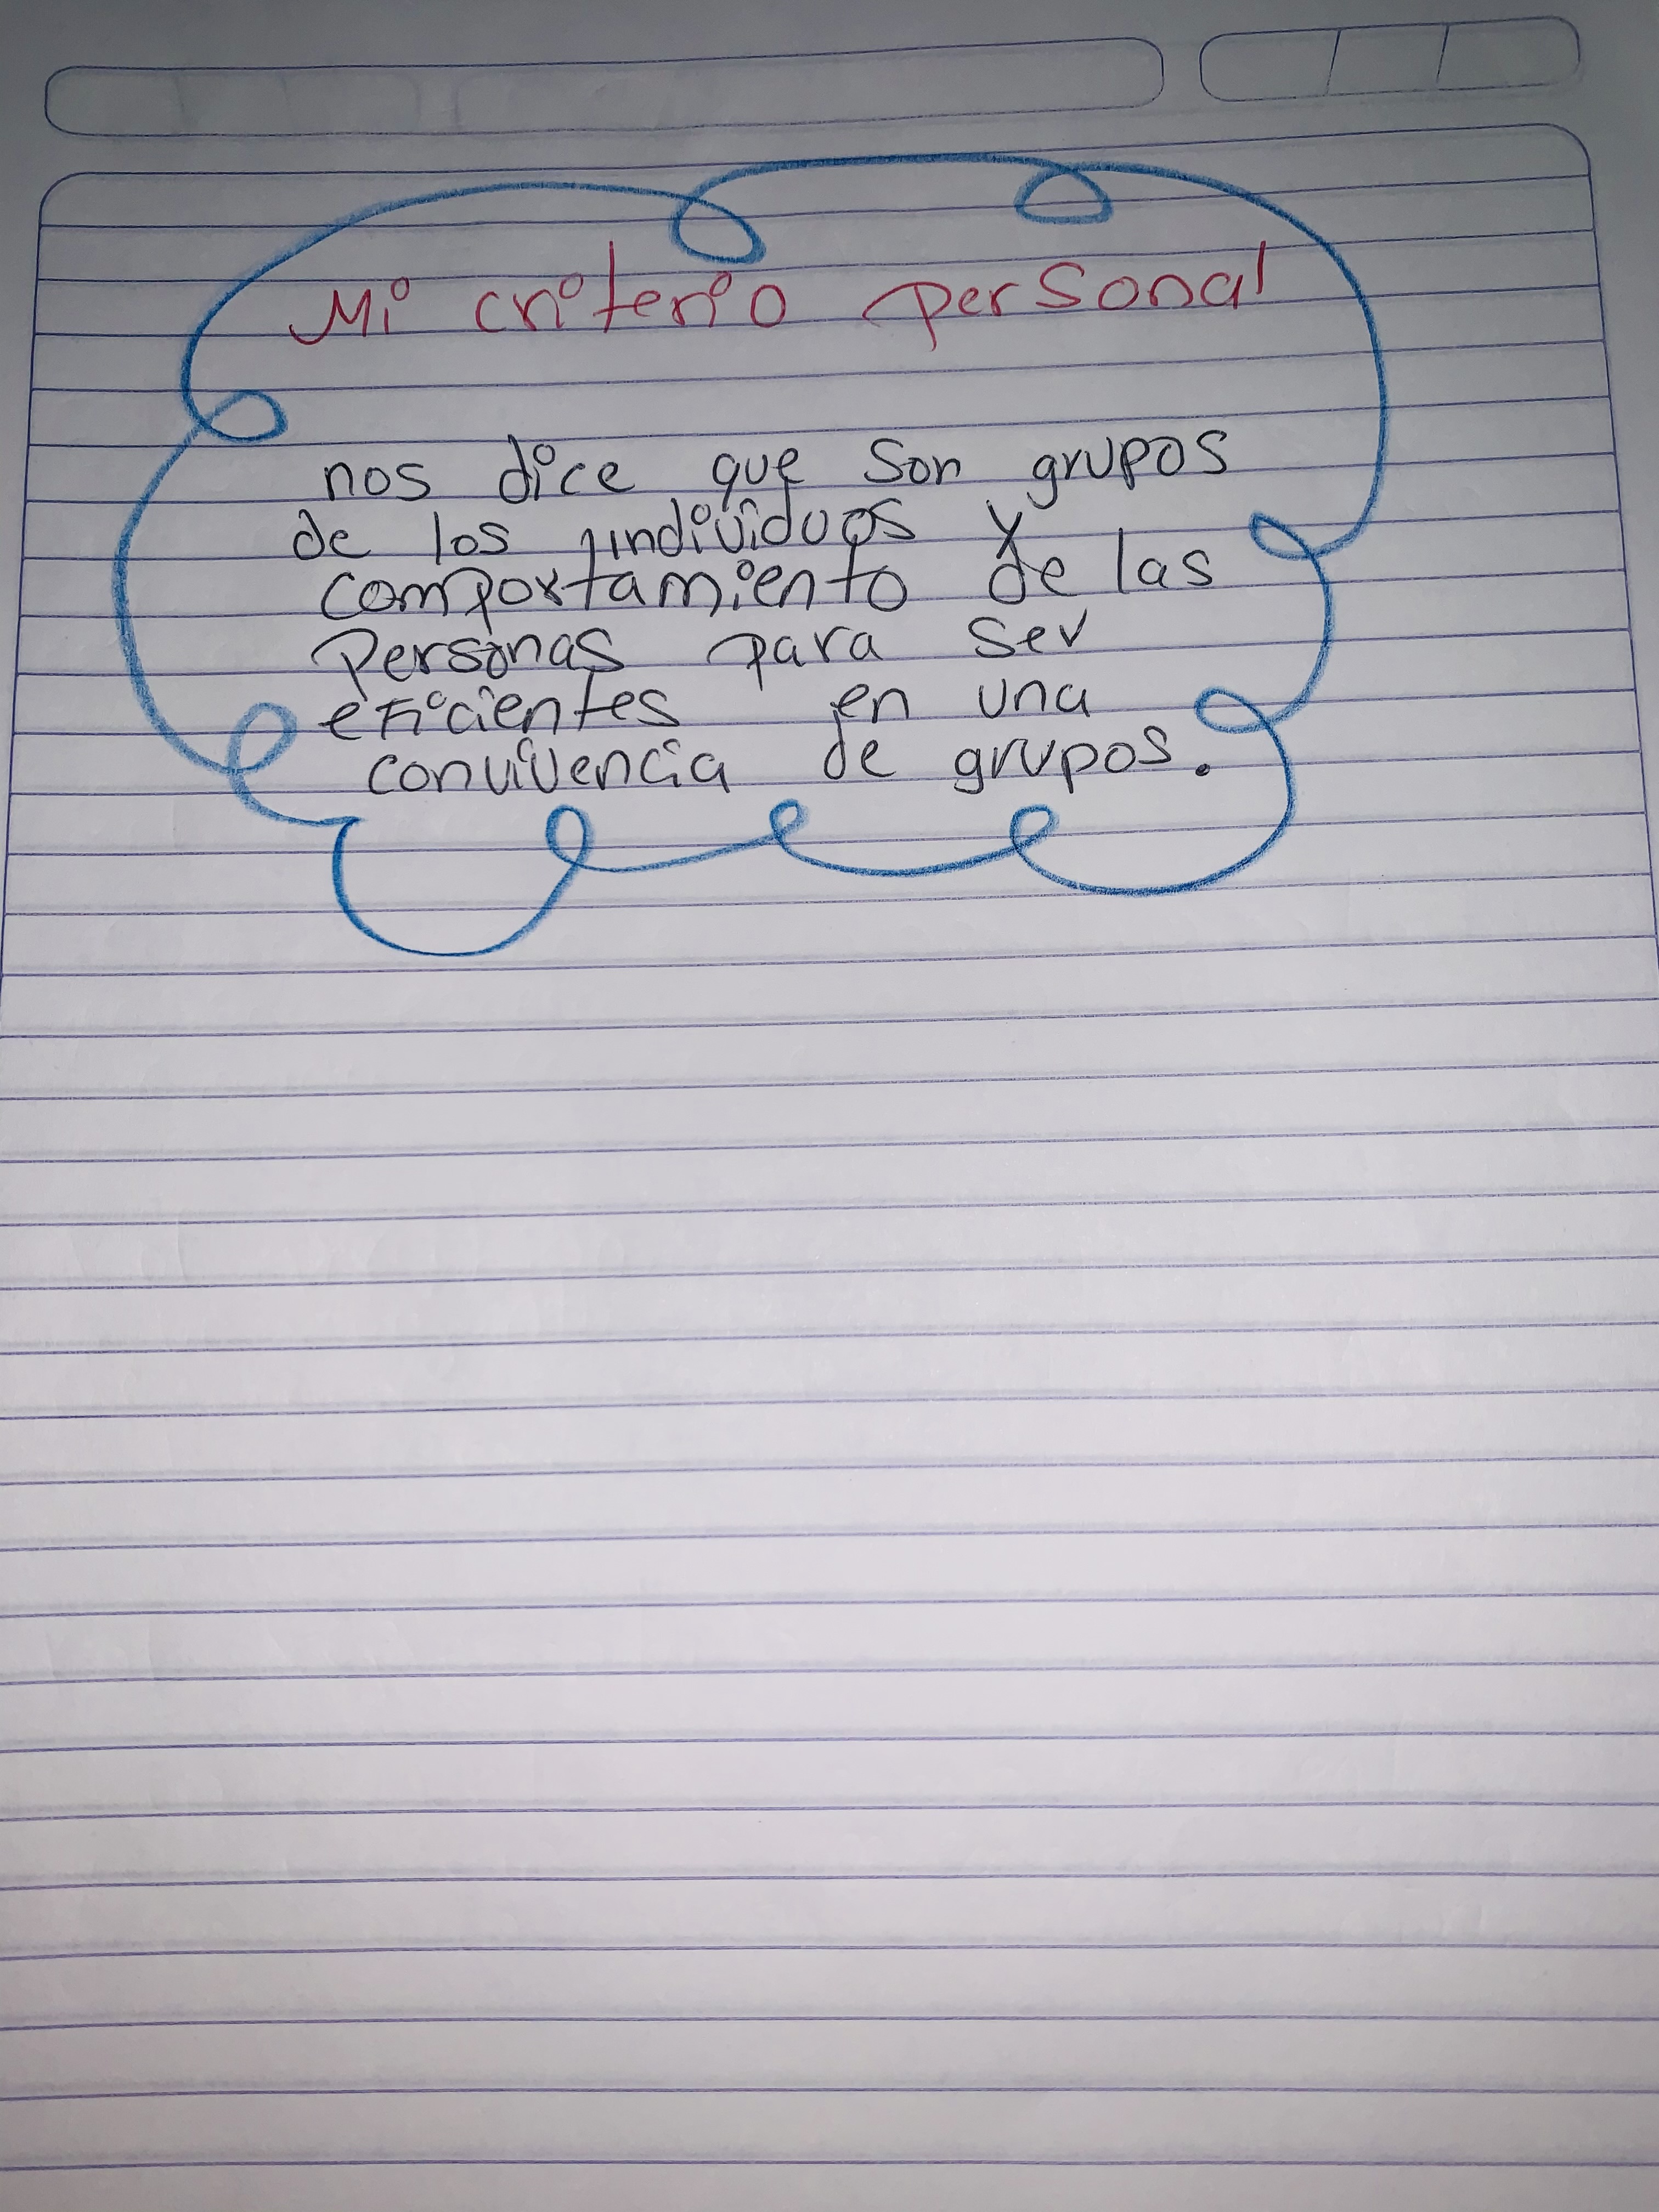 Mi criterio personal
nos dice que son grupos
de los individuos y
comportamiento de las
personas para ser
eficientes en una
convivencia de grupos.